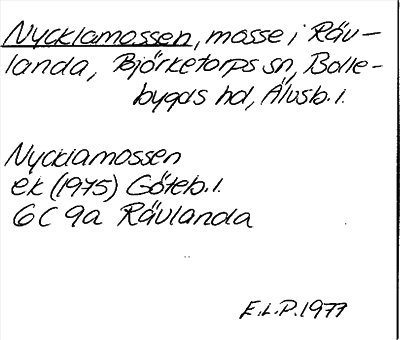 Nycklamossen, mosse i Räv-
landa, Björketorps sn, Bolle-
bygds hd, Älvsb. l.
Nycklamossen
ek (1975) Göteb. l.
6C 9a Rävlanda
E.L.P. 1977